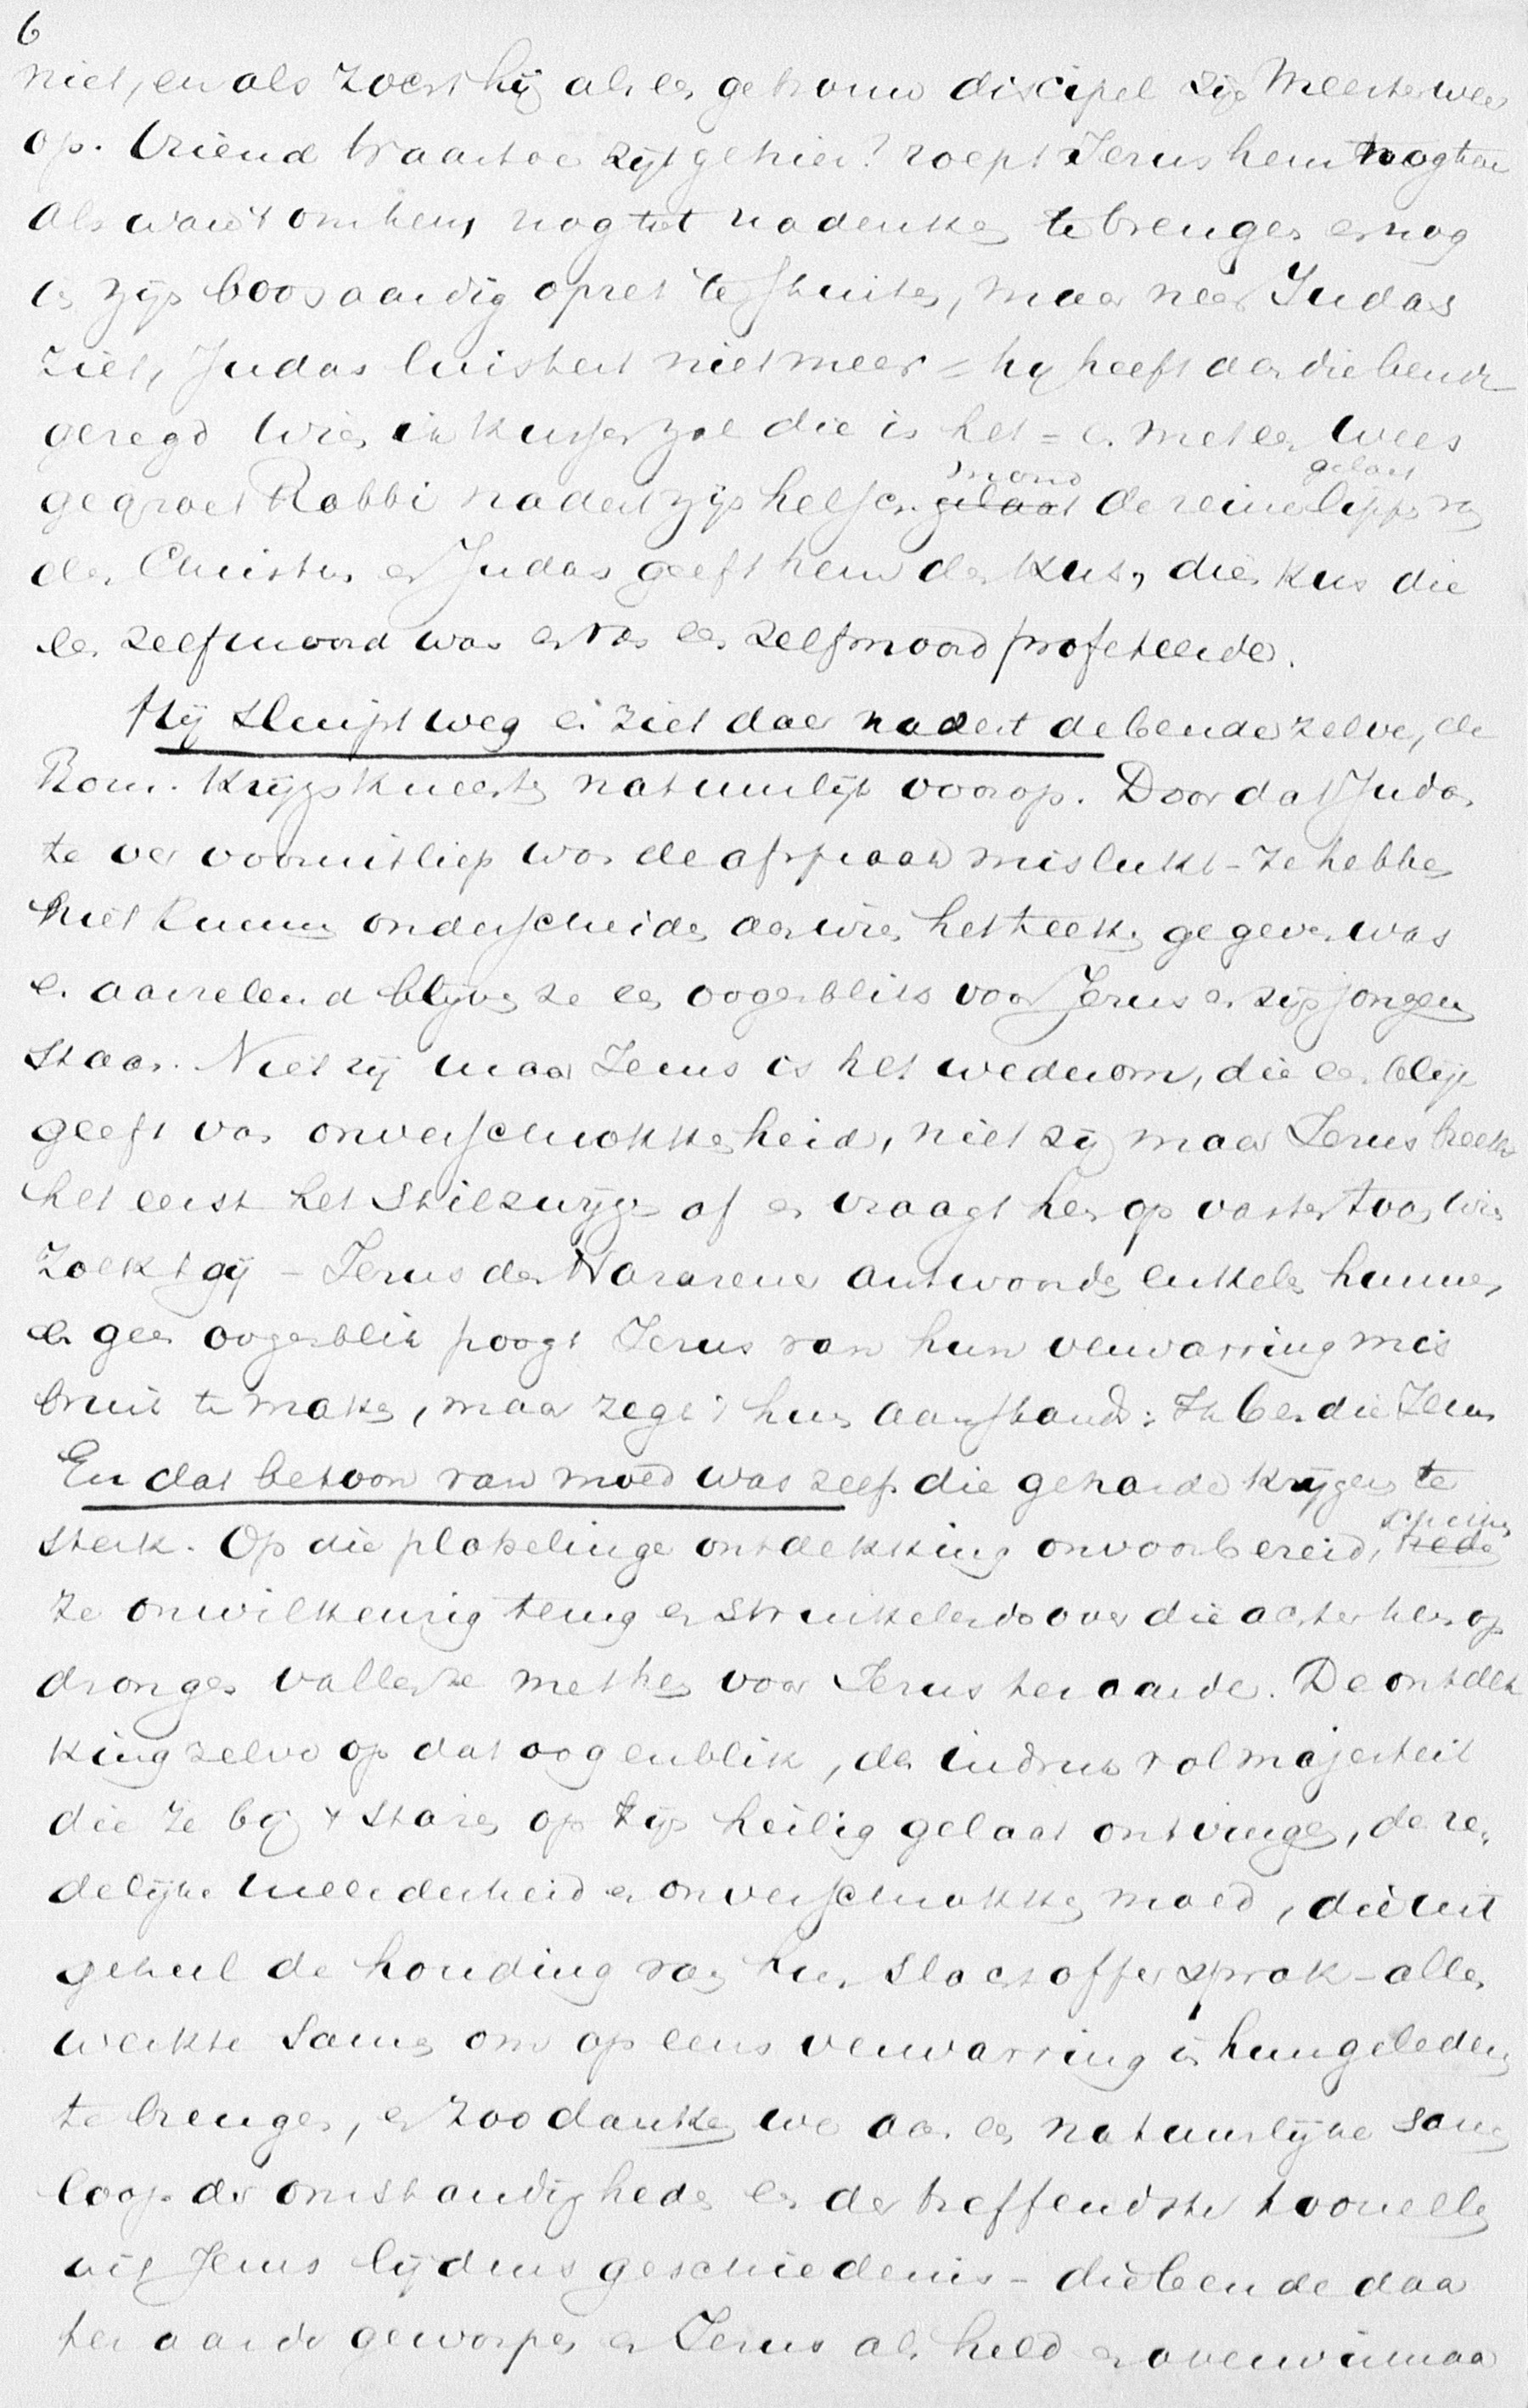 6
niet, en als zoekt hij als een getrouw discipel zijn Meester weer
op. Vriend waartoe zijt ge hier? roept Jezus hem nogtan
als waar 't om hem nog tot nadenken te brengen en nog
in zijn boosaardig opzet te stuiten, maar neen Judas
ziet, Judas luistert niet meer – hij heeft aan die bende
gezegd Wien ik kussen zal die is het – en met een Wees
gegroet Rabbi nadert zijn helschen mond gelaat de reine lippen van gelaat
den Christus en Judas geeft hem den kus, dien kus die
een zelfmoord was en van een zelfmoord profeteerde.
Hij sluipt weg en ziet daar nadert de bende zelve, de
Rom. Krijgsknechten natuurlijk voorop. Doordat Judas
te ver vooruitliep was de afspraak mislukt – ze hebben
niet kunnen onderscheiden aan wien het teeken gegeven was
en aarzelend blijven ze een oogenblik voor Jezus en zijn jongeren
staan. Niet zij maar Jezus is het wederom, die een blijk
geeft van onverschrokkenheid, niet zij maar Jezus breekt
het eerst het stilzwijgen af en vraagt hen op vasten toon, wien
zoekt gij – Jezus den Nazarener antwoorden enkelen hunner,
en geen oogenblik poogt Jezus van hun verwarring mis
bruik te maken, maar zegt hun aanstonds: Ik ben die Jezus
En dat betoon van moed was zelfs die geharde krijgers te
sterk. Op die plotselinge ontdekking onvoorbereid, treden
ze onwillkeurig terug en struikelend over die achter hen op
drongen vallen ze met hen voor Jezus ter aarde. De ontdek
king zelve op dat oogenblik, den indruk vol majesteit
die ze bij 't staren op zijn heilig gelaat ontvingen, de ze,
delijke meerderheid en onverschrokken moed, die uit
geheel de houding van hun slachtoffer sprak – alles
werkte samen om op eens verwarring in hun gelederen
te brengen, en zoo danken we aan een natuurlijke samen
loop der omstandigheden een der treffendste tooneelen
uit Jezus lijdensgeschiedenis – die bende daar
ter aarde geworpen en Jezus als held en overwinnaar